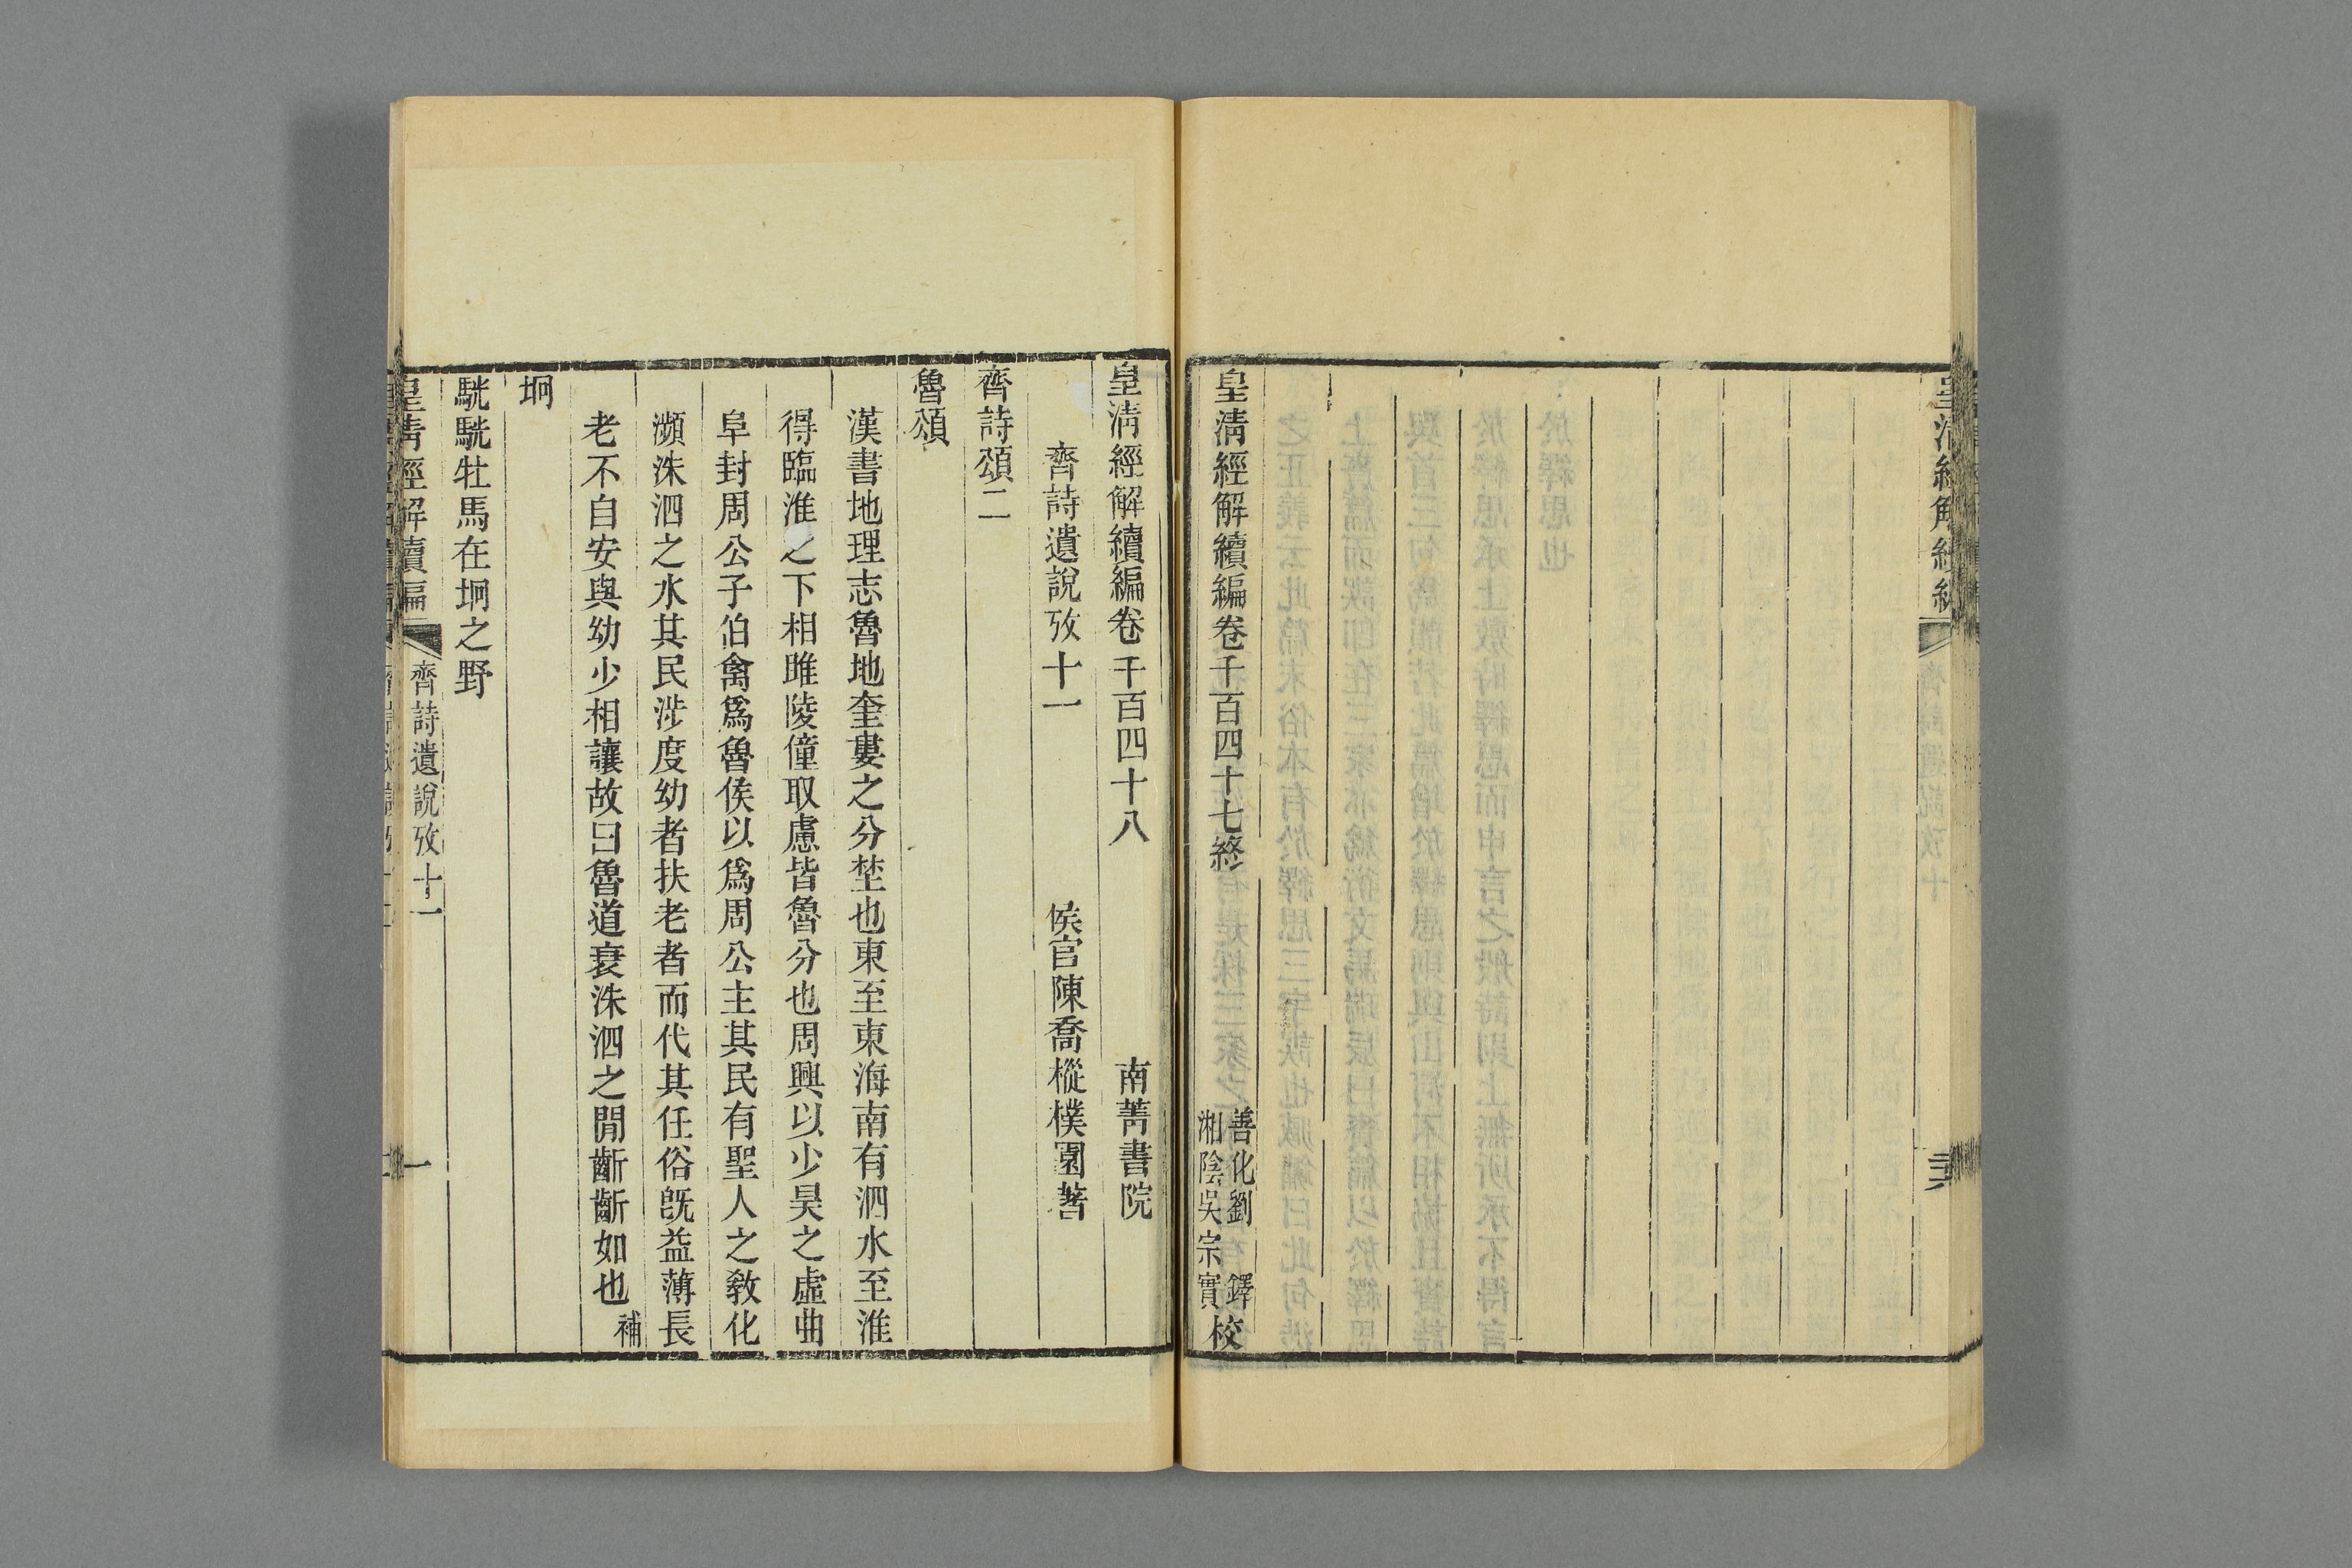 皇清經解續編卷千百四十七終
善化劉鐸
湘陰吳宗實
校
皇清經解續編卷千百四十八
南菁書院
齊詩遺說攷十一
侯官陳喬樅樸園著
齊詩頌二
魯頌
漢書地理志魯地奎婁之分壄也東至東海南有泗水至淮
得臨淮之下相睢陵僮取慮皆魯分也周興以少昊之虛曲
阜封周公子伯禽爲魯侯以爲周公主其民有聖人之教化
瀕洙泗之水其民涉度幼者扶老者而代其任俗旣益薄長
老不自安與幼少相讓故曰魯道衰洙泗之閒齗齗如也補
坰
駫駫牡馬在坰之野
皇清經解續編
齊詩遺說攷十一
一